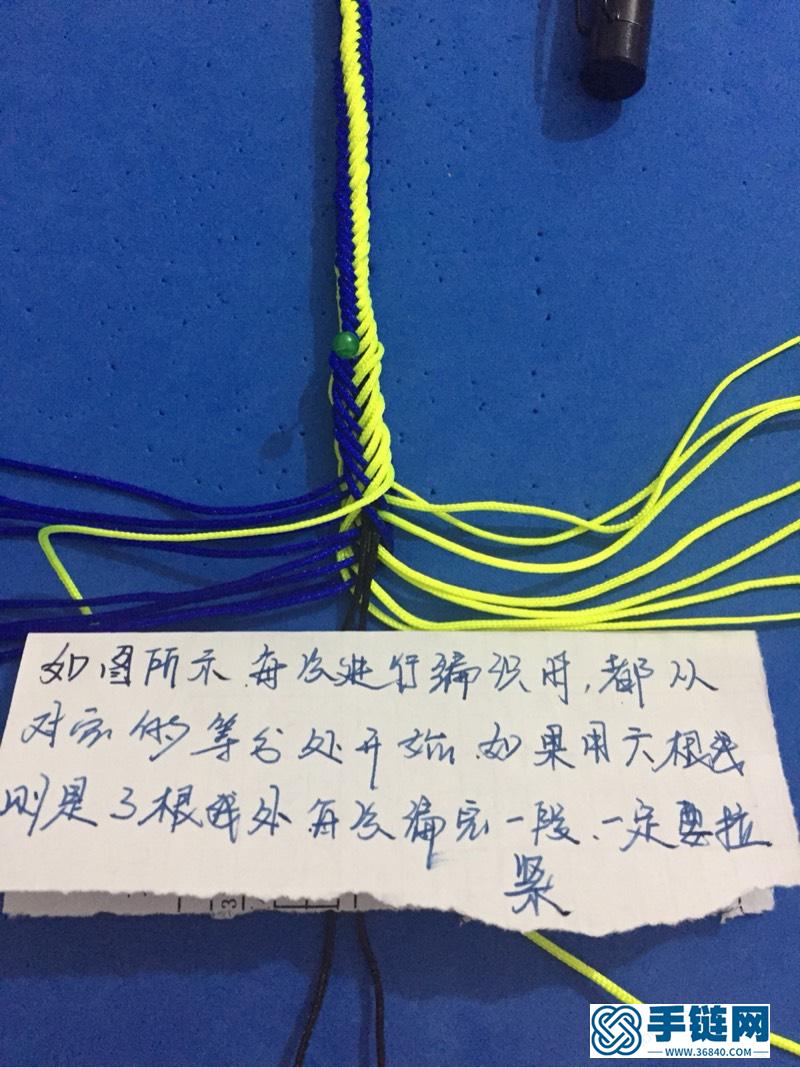 如图所示.每次进行编织时,都从
对家的等分处开始.如果用六根线
则是3根线处.每次编完一段.一定要拉
紧
3
手链网
WWW.36840.COM